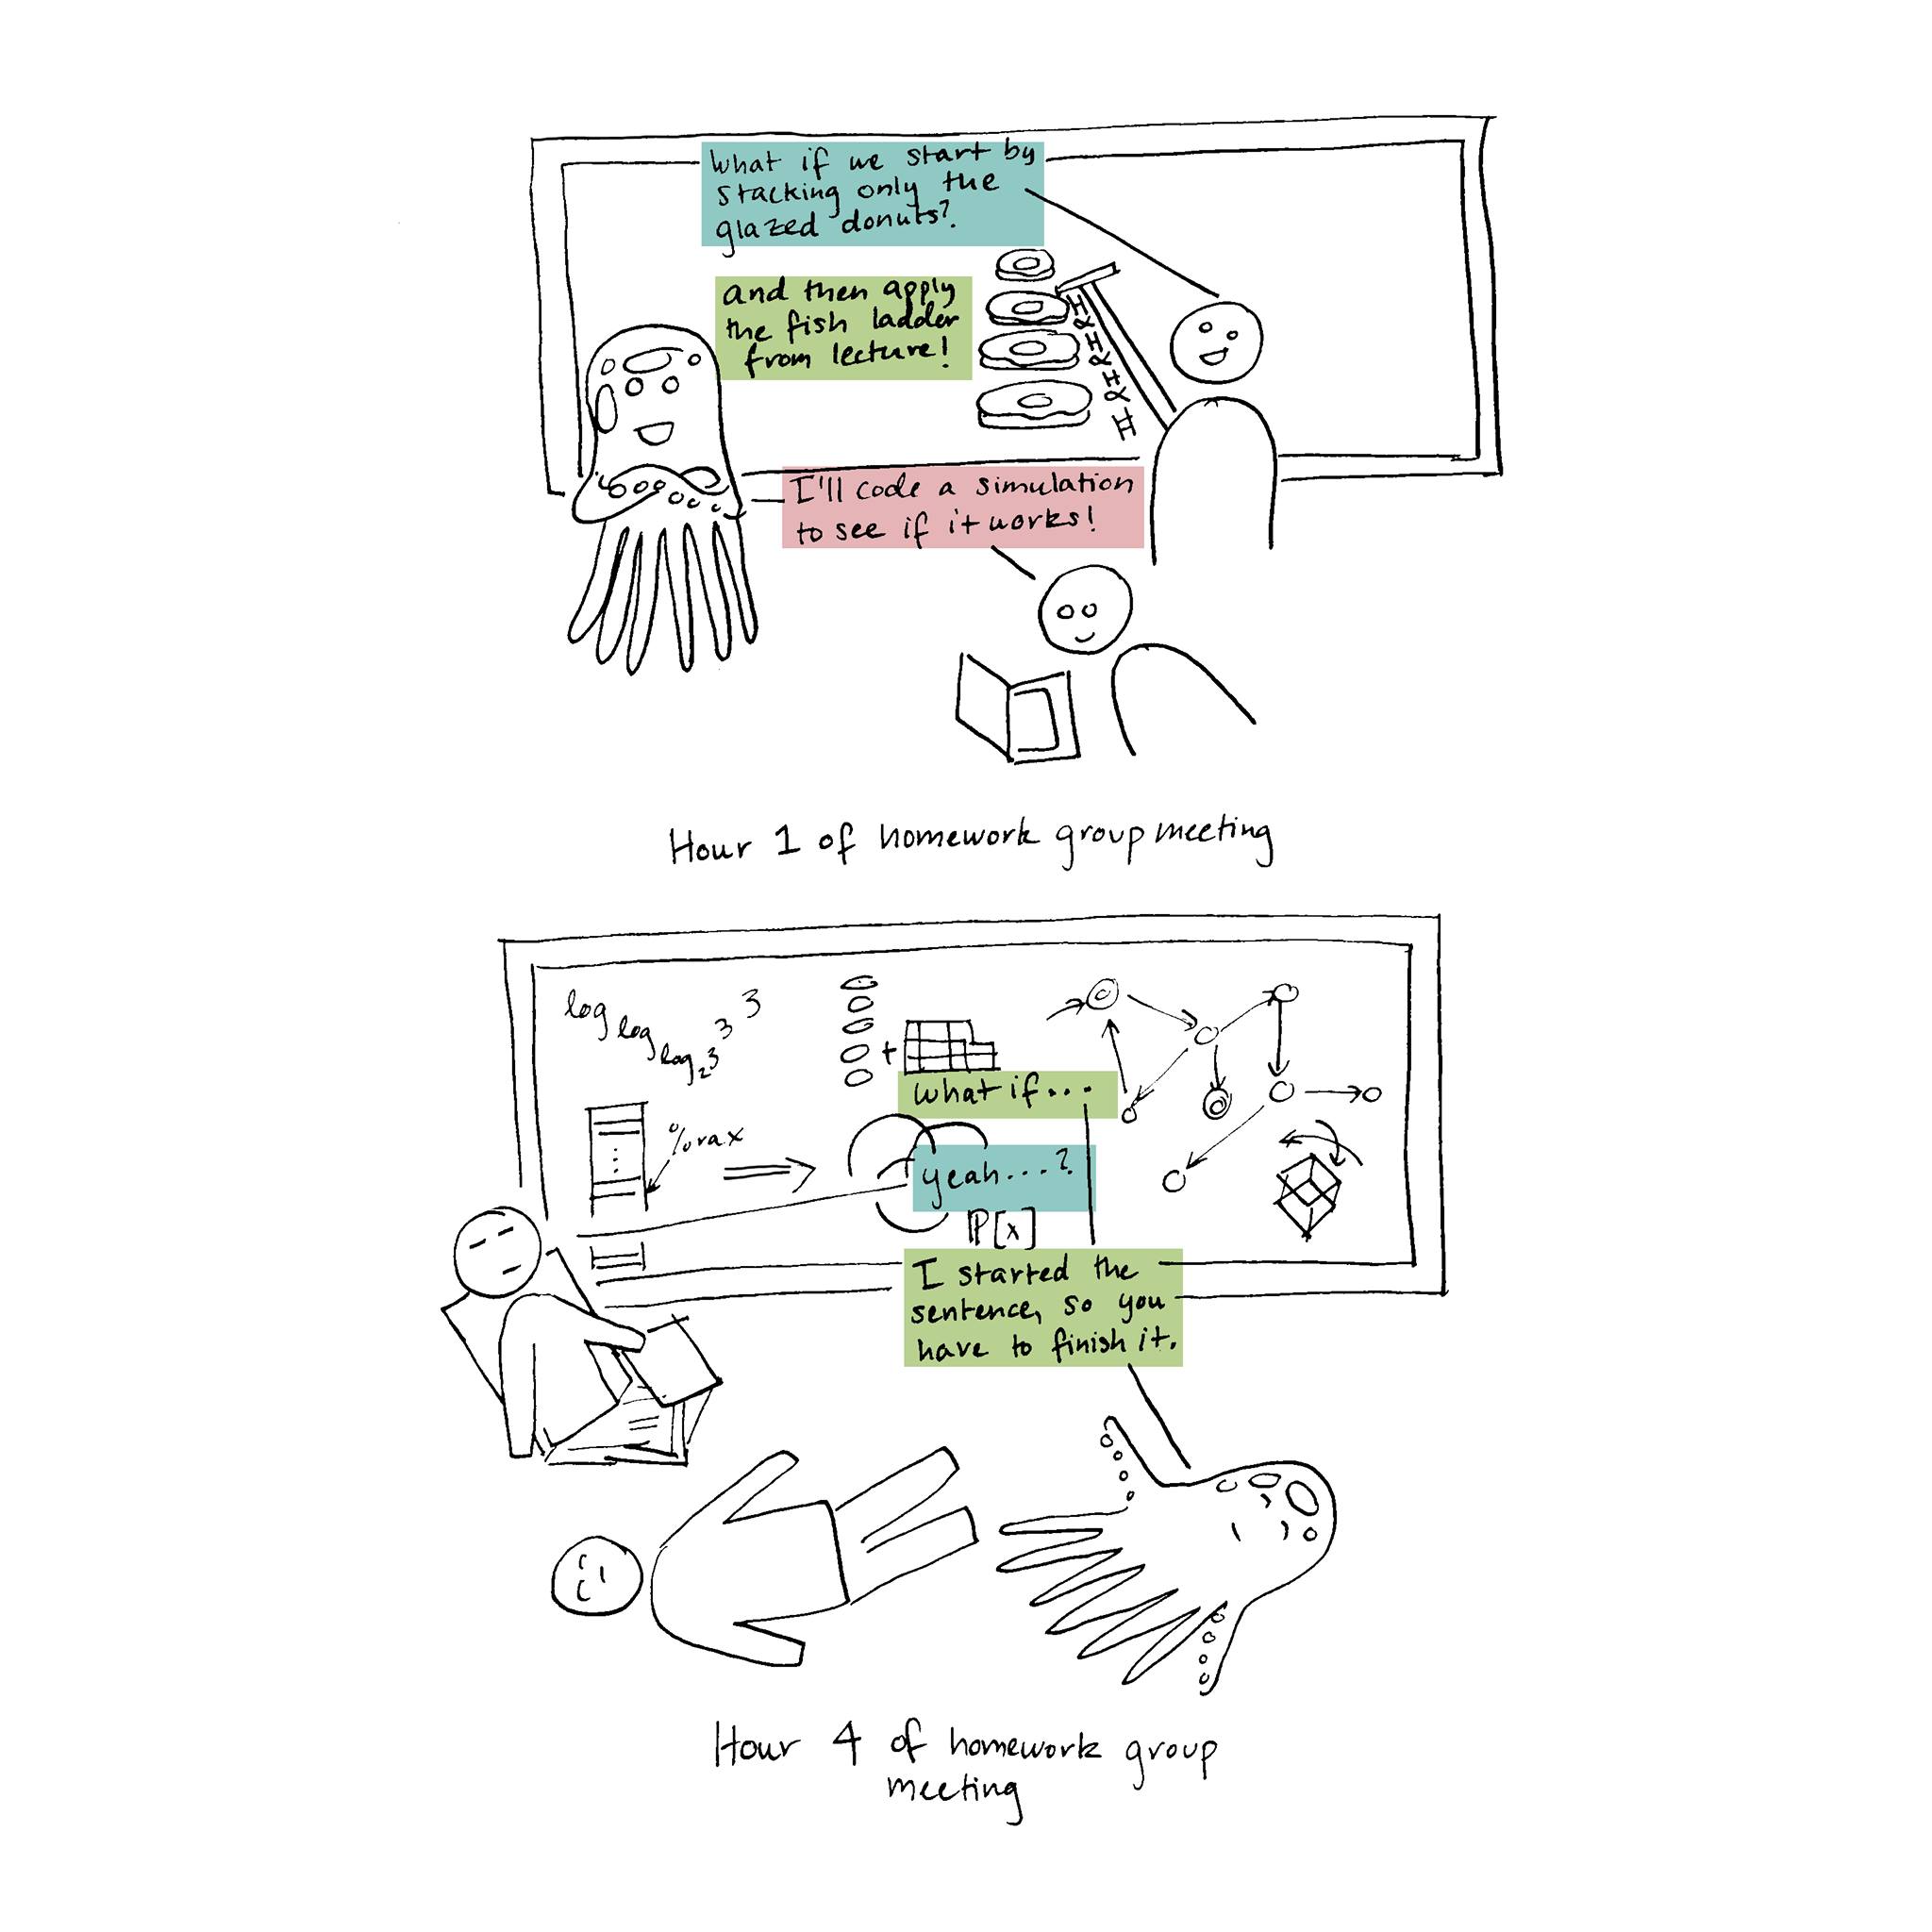 What if we start by
stacking only the
glazed donuts?
and then apply
the fish ladder
from lecture!
I'll code a simulation
to see if it works!
Hour 1 of homework group meeting
log log log₂ 3 3 3
+
%rax
what if...
yeah...?
P[x]
I started the
sentence, so you
have to finish it.
Hour 4 of homework group
meeting